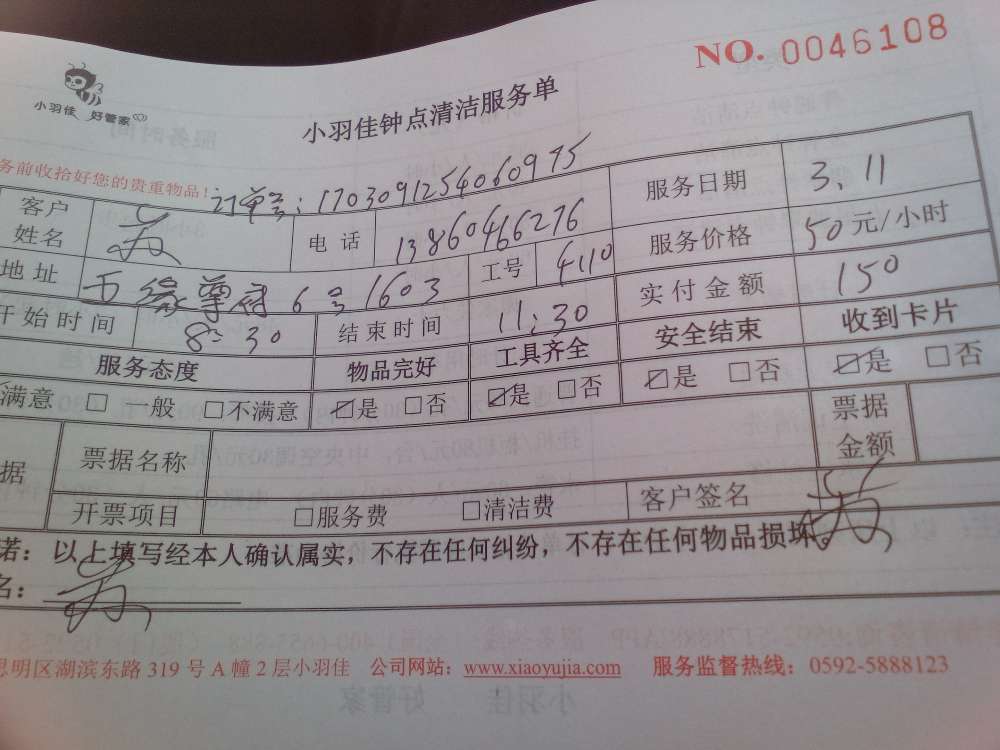 NO. 0046108
小羽佳 好管家
小羽佳钟点清洁服务单
务前收拾好您的贵重物品！
订单号：1703091254060975
客户姓名 电话 13860466276 服务日期 3.11
地址 五缘尊府6号1603 工号 4110 服务价格 50元/小时
开始时间 8:30 结束时间 11:30 实付金额 150
服务态度 物品完好 工具齐全 安全结束 收到卡片
满意 □一般 □不满意 ☑是 □否 ☑是 □否 ☑是 □否 ☑是 □否
据 票据名称 票据金额
开票项目 □服务费 □清洁费 客户签名
诺：以上填写经本人确认属实，不存在任何纠纷，不存在任何物品损坏
名：
思明区湖滨东路319号A幢2层小羽佳 公司网站：www.xiaoyujia.com 服务监督热线：0592-5888123